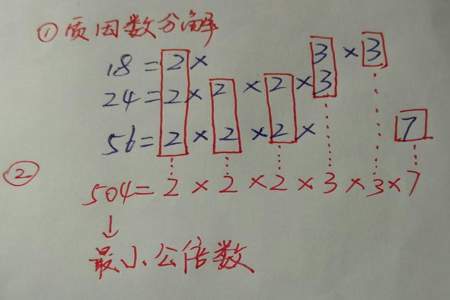 ①质因数分解
18=2× 3×3
24=2×2×2×3
56=2×2×2× 7
②
504=2×2×2×3×3×7
↓
最小公倍数